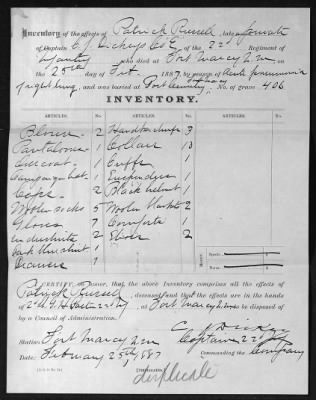 Inventory of the effects of Patrick Russell, late a private
of Captain C. J. Dickey's Co E, of the 22d Regiment of
Infantry who died at Fort Marcy N.M. on
the 25th day of Feb, 1887, by reason of Acute pneumonia
of right lung, and was buried at Post Cemetery, No. of grave 406
INVENTORY.
ARTICLES. No. ARTICLES. No. ARTICLES. No.
Blouse 2 Handkerchiefs 3
Pantaloons 1 Collars 10
Overcoat 1 Cuffs 1
Campaign hat 1 Suspenders 1
Caps 2 Black helmet 1
Woolen socks 5 Woolen blankets 2
Gloves 7 Comforts 1
undershirts 2 2
dark blue shirt 1
Drawers 1
I CERTIFY, on honor, that the above Inventory comprises all the effects of
Patrick Russell, deceased, and that the effects are in the hands
of 2d Lt. at Fort Marcy N.M. to be disposed of
by a Council of Administration.
Station: Fort Marcy N.M. C. J. Dickey
Captain 22d
Date: February 25th, 1887 Commanding the Company
Duplicate